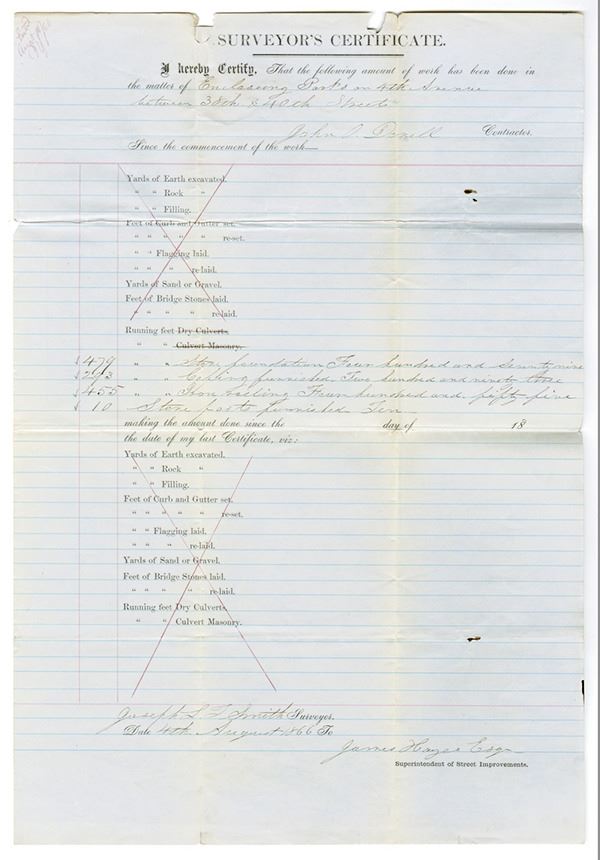 SURVEYOR'S CERTIFICATE.
I hereby Certify, That the following amount of work has been done in
the matter of Enclosing Parks on 4th Avenue
between 38th & 40th Streets
John Contractor.
Since the commencement of the work
Yards of Earth excavated.
" " Rock "
" " Filling.
Feet of Curb and Gutter set.
" " " " " re-set.
" " Flagging laid.
" " " re-laid.
Yards of Sand or Gravel.
Feet of Bridge Stones laid.
" " " " re-laid.
Running feet Dry Culverts.
" " Culvert Masonry.
479 " " Stone foundation Four hundred and seventy nine
293 " " furnished Two hundred and ninety three
455 " " Iron railing Four hundred and fifty five
10 Stone posts furnished Ten
making the amount done since the day of 18
the date of my last Certificate, viz:
Yards of Earth excavated.
" " Rock "
" " Filling.
Feet of Curb and Gutter set.
" " " " " re-set.
" " Flagging laid.
" " " re-laid.
Yards of Sand or Gravel.
Feet of Bridge Stones laid.
" " " " re-laid.
Running feet Dry Culverts.
" " Culvert Masonry.
Joseph Smith Surveyor.
Date 4th August 1866 To
James Hayes Esqr
Superintendent of Street Improvements.